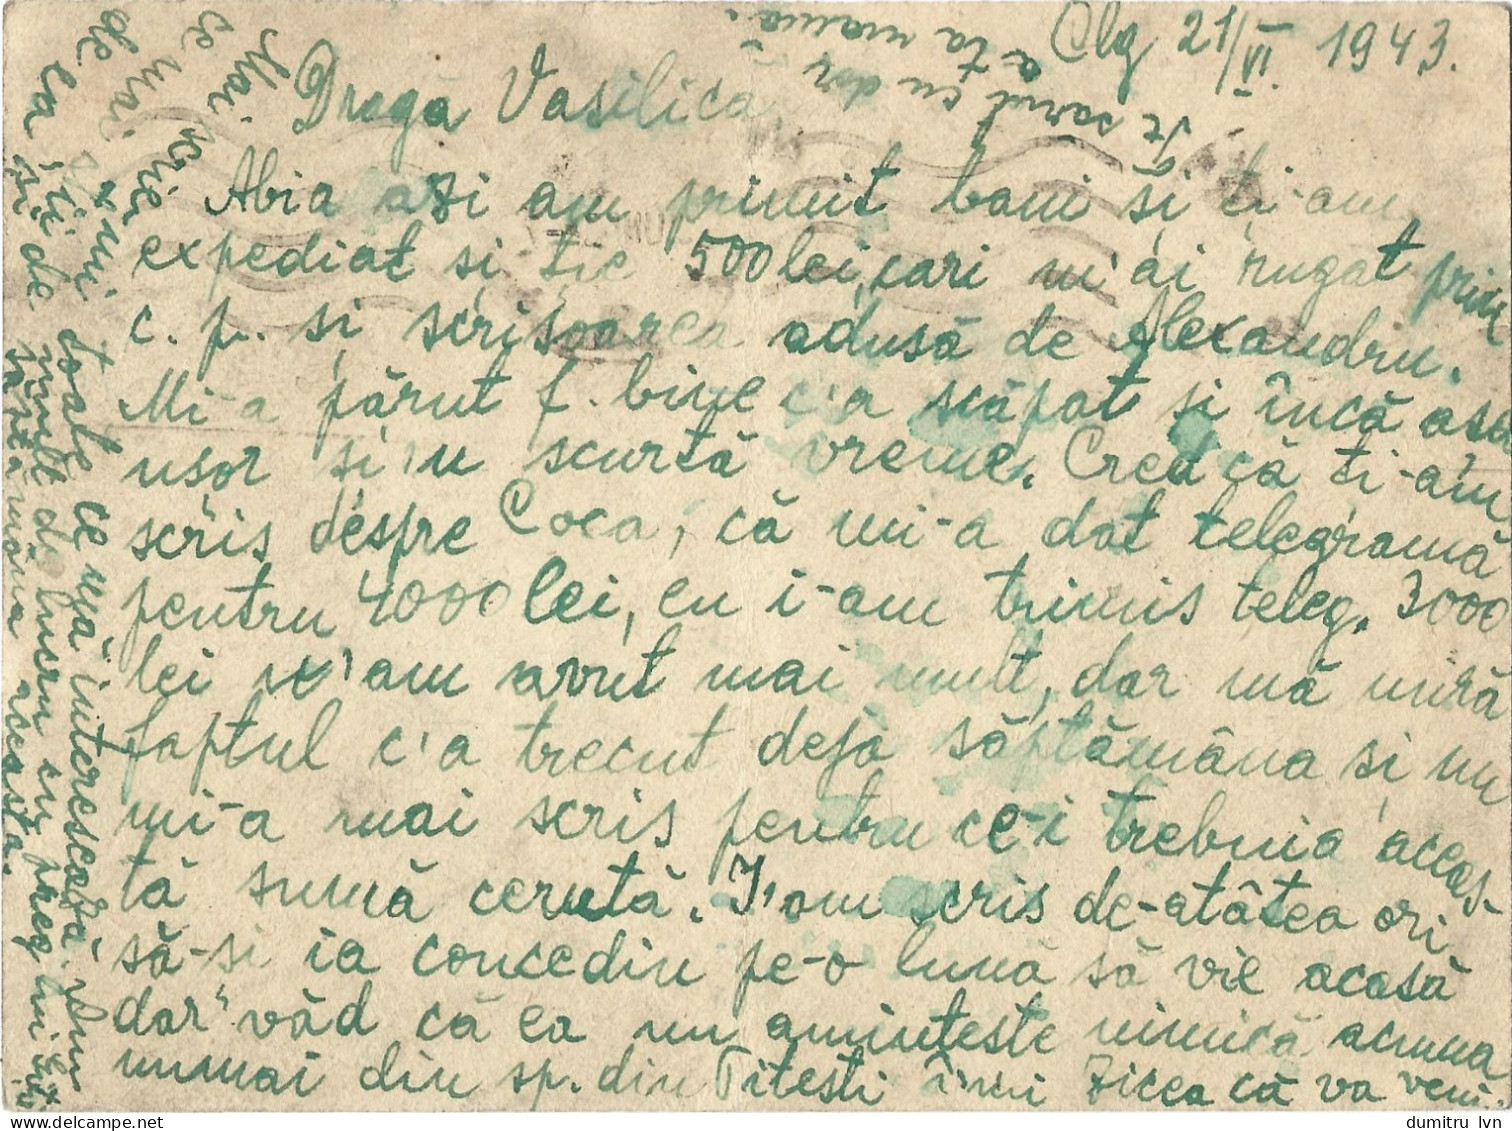 Clg 21/VI 1943.
Dragă Vasilica,
Abia azi am primit bani și ți-am
expediat și ție 500 lei, cari m'ai rugat prin
c. p. și scrisoarea adusă de Alexandru.
Mi-a părut f. bine c'a scăpat și încă așa
ușor și'n scurtă vreme. Cred că ți-am
scris despre Coca, că mi-a dat telegramă
pentru 4000 lei, eu i-am trimis teleg. 3000
lei n'am avut mai mult, dar mă miră
faptul c'a trecut deja săptămâna și nu
mi-a mai scris pentru ce-i trebuia aceas-
tă sumă cerută. I'am scris de-atâtea ori
să-și ia concediu pe-o lună să vie acasă
dar văd că ea nu amintește nimica acuma
numai din sp. din Pitești îmi zicea că va veni.
Mai scrie
ce mai
de la
și mi toate ce mă interesează.
și de mult de lucru cu
săptămâna aceasta.
Te sărut cu dor
a ta mamă.
dumitru lvn